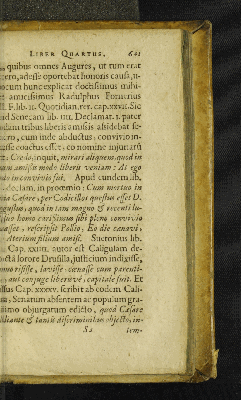 LIBER QUARTUS. 601
, quibus omnes Augures, ut tum erat
ero, adesse oportebat honoris causâ, u-
locum hunc explicat doctissimus mihi-
amicissimus Radulphus Fornerius
ll. F. lib. II. Quotidian. rer. cap. XXVII. Sic
ud Senecam lib. IIII. Declamat. I. pater
dam tribus liberis amissis assidebat se-
cro, cum inde abductus, convivio in-
asse coactus esset, eo nomine injuriarū
Credo, inquit, mirari aliquem, quod in
um amissis modo liberis veniam: At ego
in convivio fui. Apud eundem lib.
declam. in proœmio: Cum mortuo in
ria Cæsare, per Codicillos questus esset D.
gustus, quod in tam magno & recenti lu-
homo carissimus sibi pleno convivio
asset, rescripsit Pollio, Eo die cœnavi,
Aterium filium amisi. Suetonius lib.
Cap. XXIIII. autor est Caligulam de-
ctâ sorore Drusilla, justitium indixisse,
risisse, lavisse, cœnasse cum parenti-
aut conjuge liberisvé, capitale fuit. Et
sus Cap. XXXXV. scribit ab eodem Cali-
, Senatum absentem ac populum gra-
simo objurgatum edicto, quod Cæsare
liante & tantis discriminibus objecto, in-
tem-